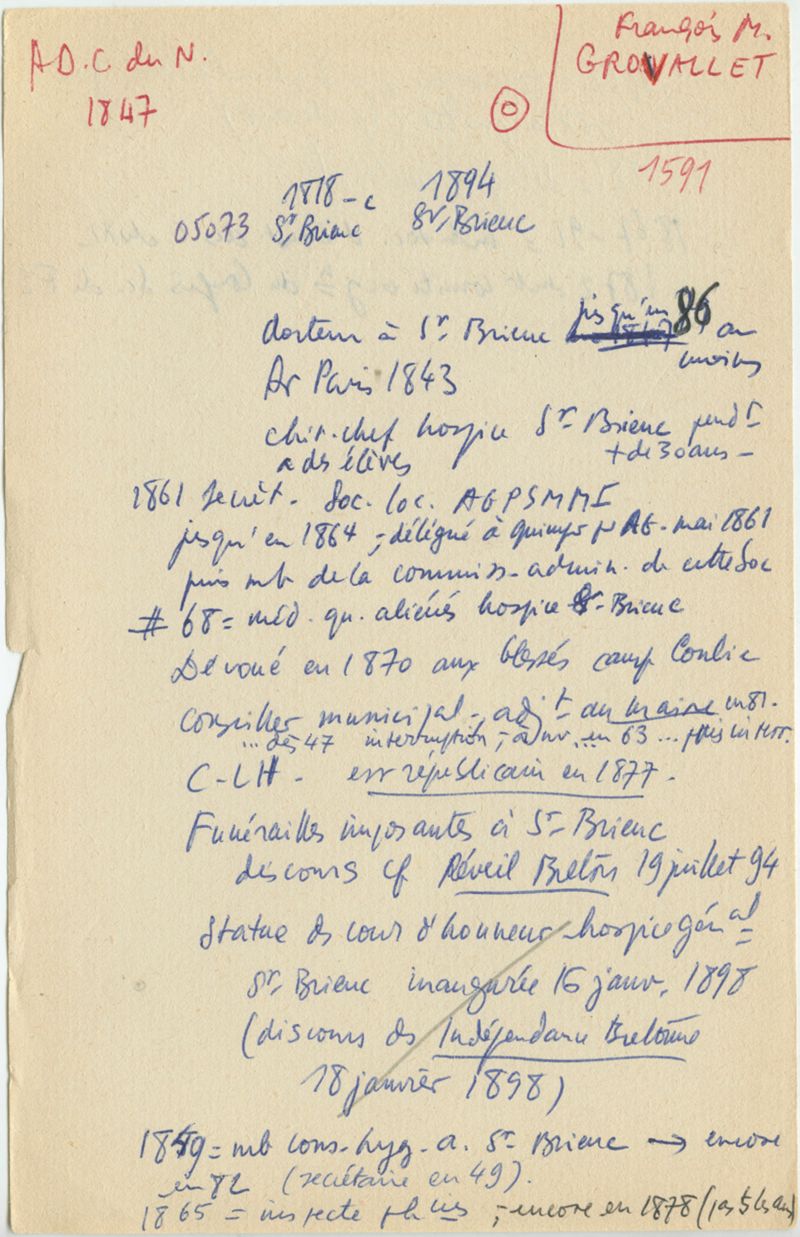 A D. C. du N.
1847
François M.
GROVALLET
1591
1818 - c 1894
05073 St Brieuc St Brieuc
docteur à St Brieuc jusqu'en 86 au
moins
Ar Paris 1843
chir. chef hospice St Brieuc pendt
a des élèves + de 30 ans -
1861 Secrét. Soc. loc. AGPSMMI
jusqu'en 1864 ; délégué à quimper pr AG. mai 1861
puis mb de la commiss. admin. de cette Soc
# 68 = méd. qu. aliénés hospice St Brieuc
Dévoué en 1870 aux blessés camp Conlie
Conseiller municipal - adjt au maire en 81.
... dès 47 interruption ; à nv. en 63 ... puis interr.
C-LH - est républicain en 1877.
Funérailles imposantes à St Brieuc
discours cf Réveil Breton 19 juillet 94
Statue ds cour d'honneur hospice génal
St Brieuc inaugurée 16 janv. 1898
(discours ds Indépendance Bretonne
18 janvier 1898)
1849 = mb cons. hyg. a. St Brieuc → encore
en 82 (secrétaire en 49).
1865 = inspecte phcies ; encore en 1878 (pas ts les ans)